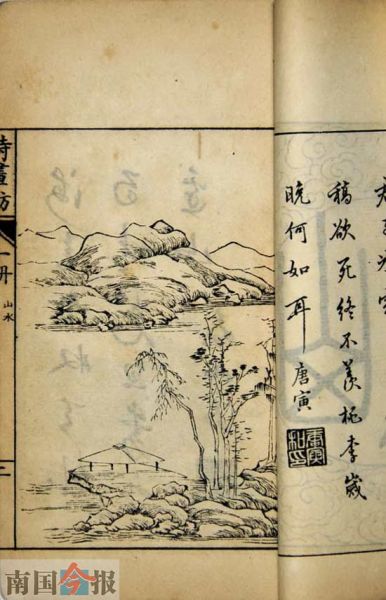 稿欲死終不羨桃李歲
晚何如耳 唐寅
詩畫舫
一册
山水
二
南国今报